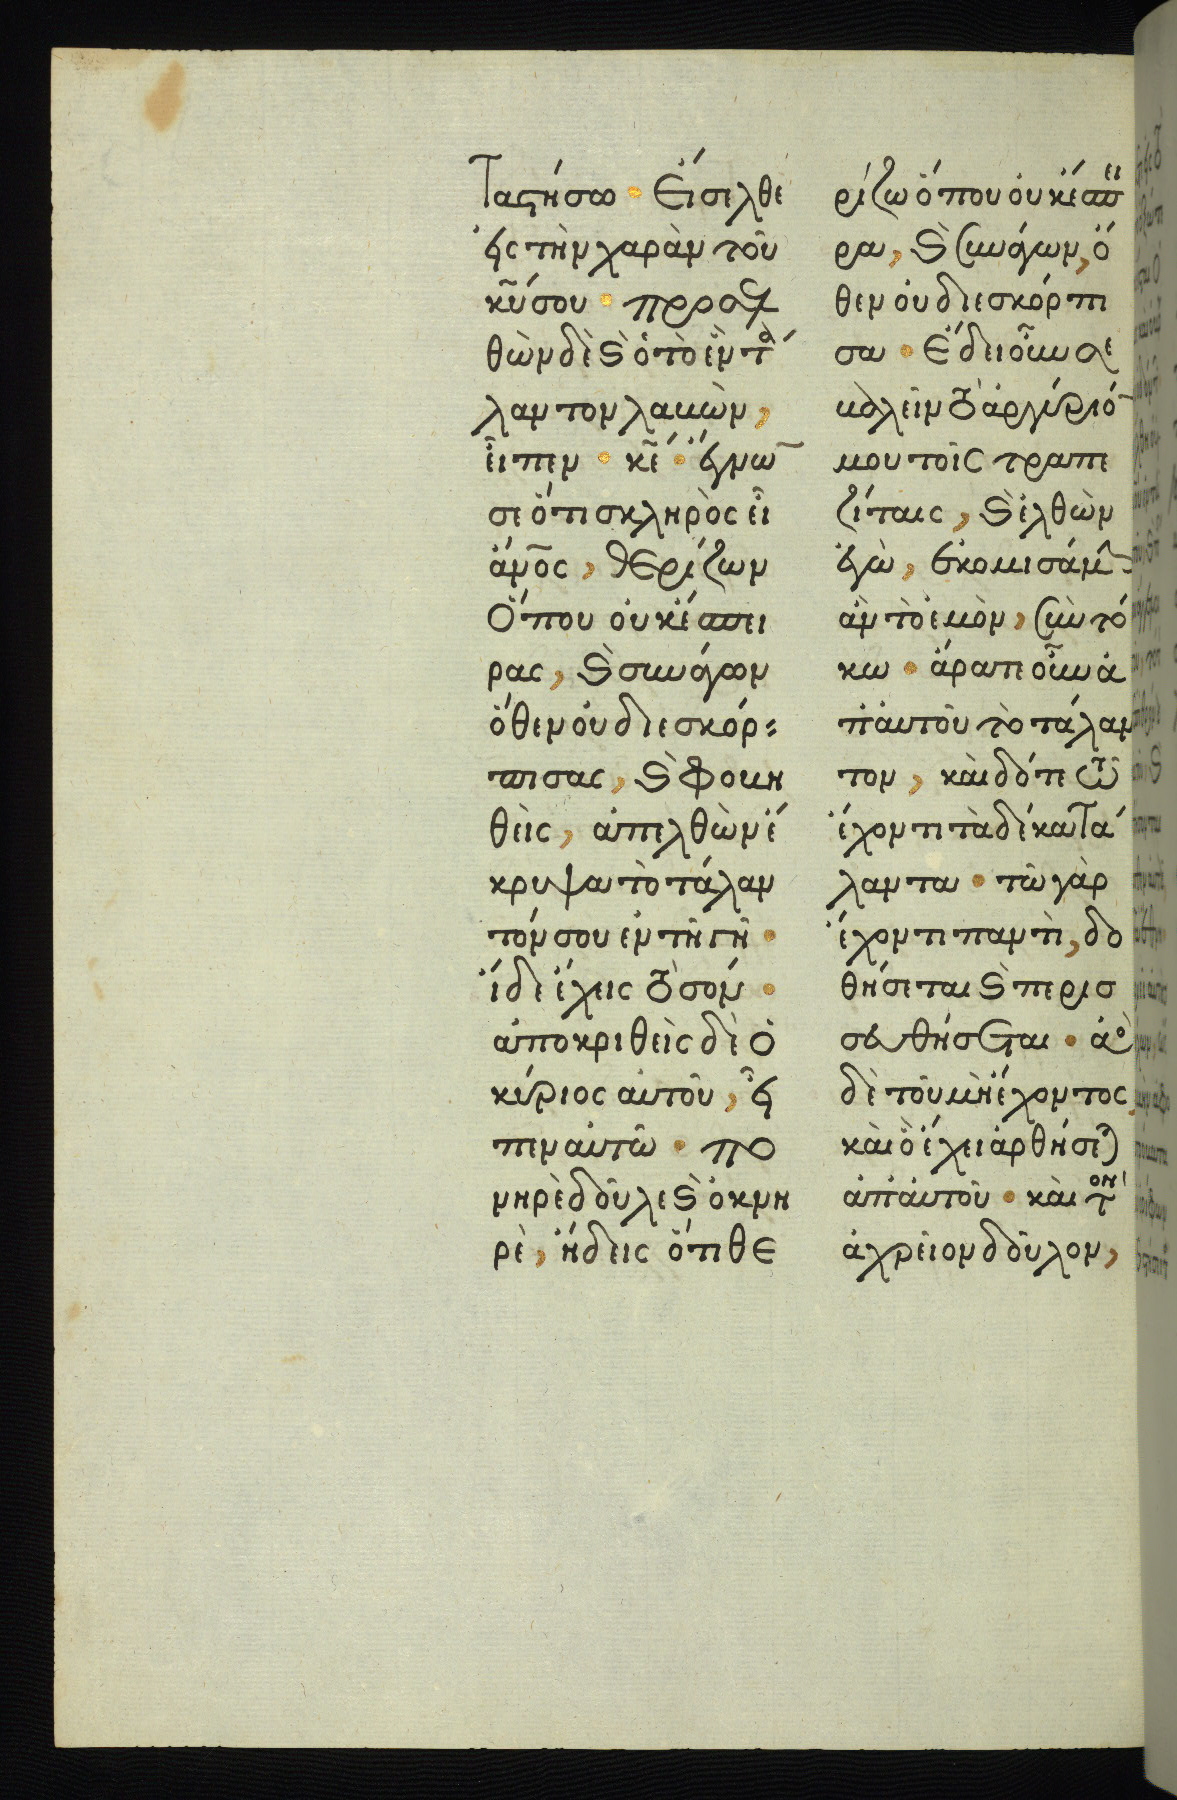 ταστήσω · Εἴσελθε
εἰς τὴν χαρὰν τοῦ
κῦ σου · προσελ
θὼν δὲ ϗ ὁ τὸ ἓν τά
λαντον λαβὼν,
εἶπεν · κε̄ · ἔγνων
σε ὅτι σκληρὸς εἶ
ἄνος̄, θερίζων
ὅπου οὐκ ἔσπει
ρας, ϗ συνάγων
ὅθεν οὐ διεσκόρ-
πισας, ϗ φοβη
θεὶς, ἀπελθὼν ἔ
κρυψα τὸ τάλαν
τόν σου ἐν τῆ γῆ ·
ἴδε ἔχεις τὸ σόν ·
ἀποκριθεὶς δὲ ὁ
κύριος αὐτοῦ, εἶ
πεν αὐτῶ · πο
νηρὲ δοῦλε ϗ ὀκνη
ρὲ, ἤδεις ὅτι θε
ρίζω ὅπου οὐκ ἔσπει
ρα, ϗ συνάγων, ὅ
θεν οὐ διεσκόρπι
σα · ἔδει οὖν σε
βαλεῖν τὸ ἀργύριόν
μου τοῖς τραπε
ζίταις, ϗ ἐλθὼν
ἐγὼ, ἐκομισάμην
ἂν τὸ ἐμὸν, σὺν τό
κω · ἄρατε οὖν ἀ
π' αὐτοῦ τὸ τάλαν
τον, καὶ δότε τῶ
ἔχοντι τὰ δέκα τά
λαντα · τῶ γὰρ
ἔχοντι παντὶ, δο
θήσεται ϗ περισ
σευθήσεται · ἀπὸ
δὲ τοῦ μὴ ἔχοντος,
καὶ ὃ ἔχει ἀρθήσεται
ἀπ' αὐτοῦ · καὶ τὸν
ἀχρεῖον δοῦλον,